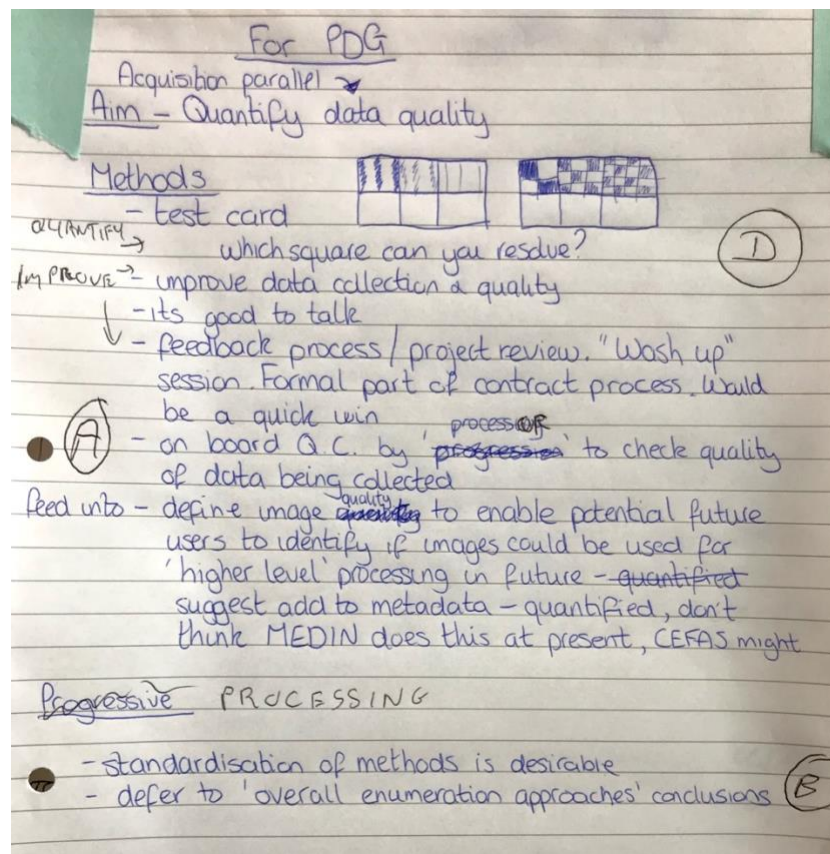 For PDG
Acquisition parallel
Aim - Quantify data quality
Methods
- test card
QUANTIFY → which square can you resolve?
D
IMPROVE → - improve data collection & quality
- its good to talk
- feedback process / project review. "Wash up"
session. Formal part of contract process. Would
be a quick win
A
- on board Q.C. by 'progression processor' to check quality
of data being collected
feed into - define image quality to enable potential future
users to identify if images could be used for
'higher level' processing in future - quantified
suggest add to metadata - quantified, don't
think MEDIN does this at present, CEFAS might
Progressive PROCESSING
- standardisation of methods is desirable
- defer to 'overall enumeration approaches' conclusions
B